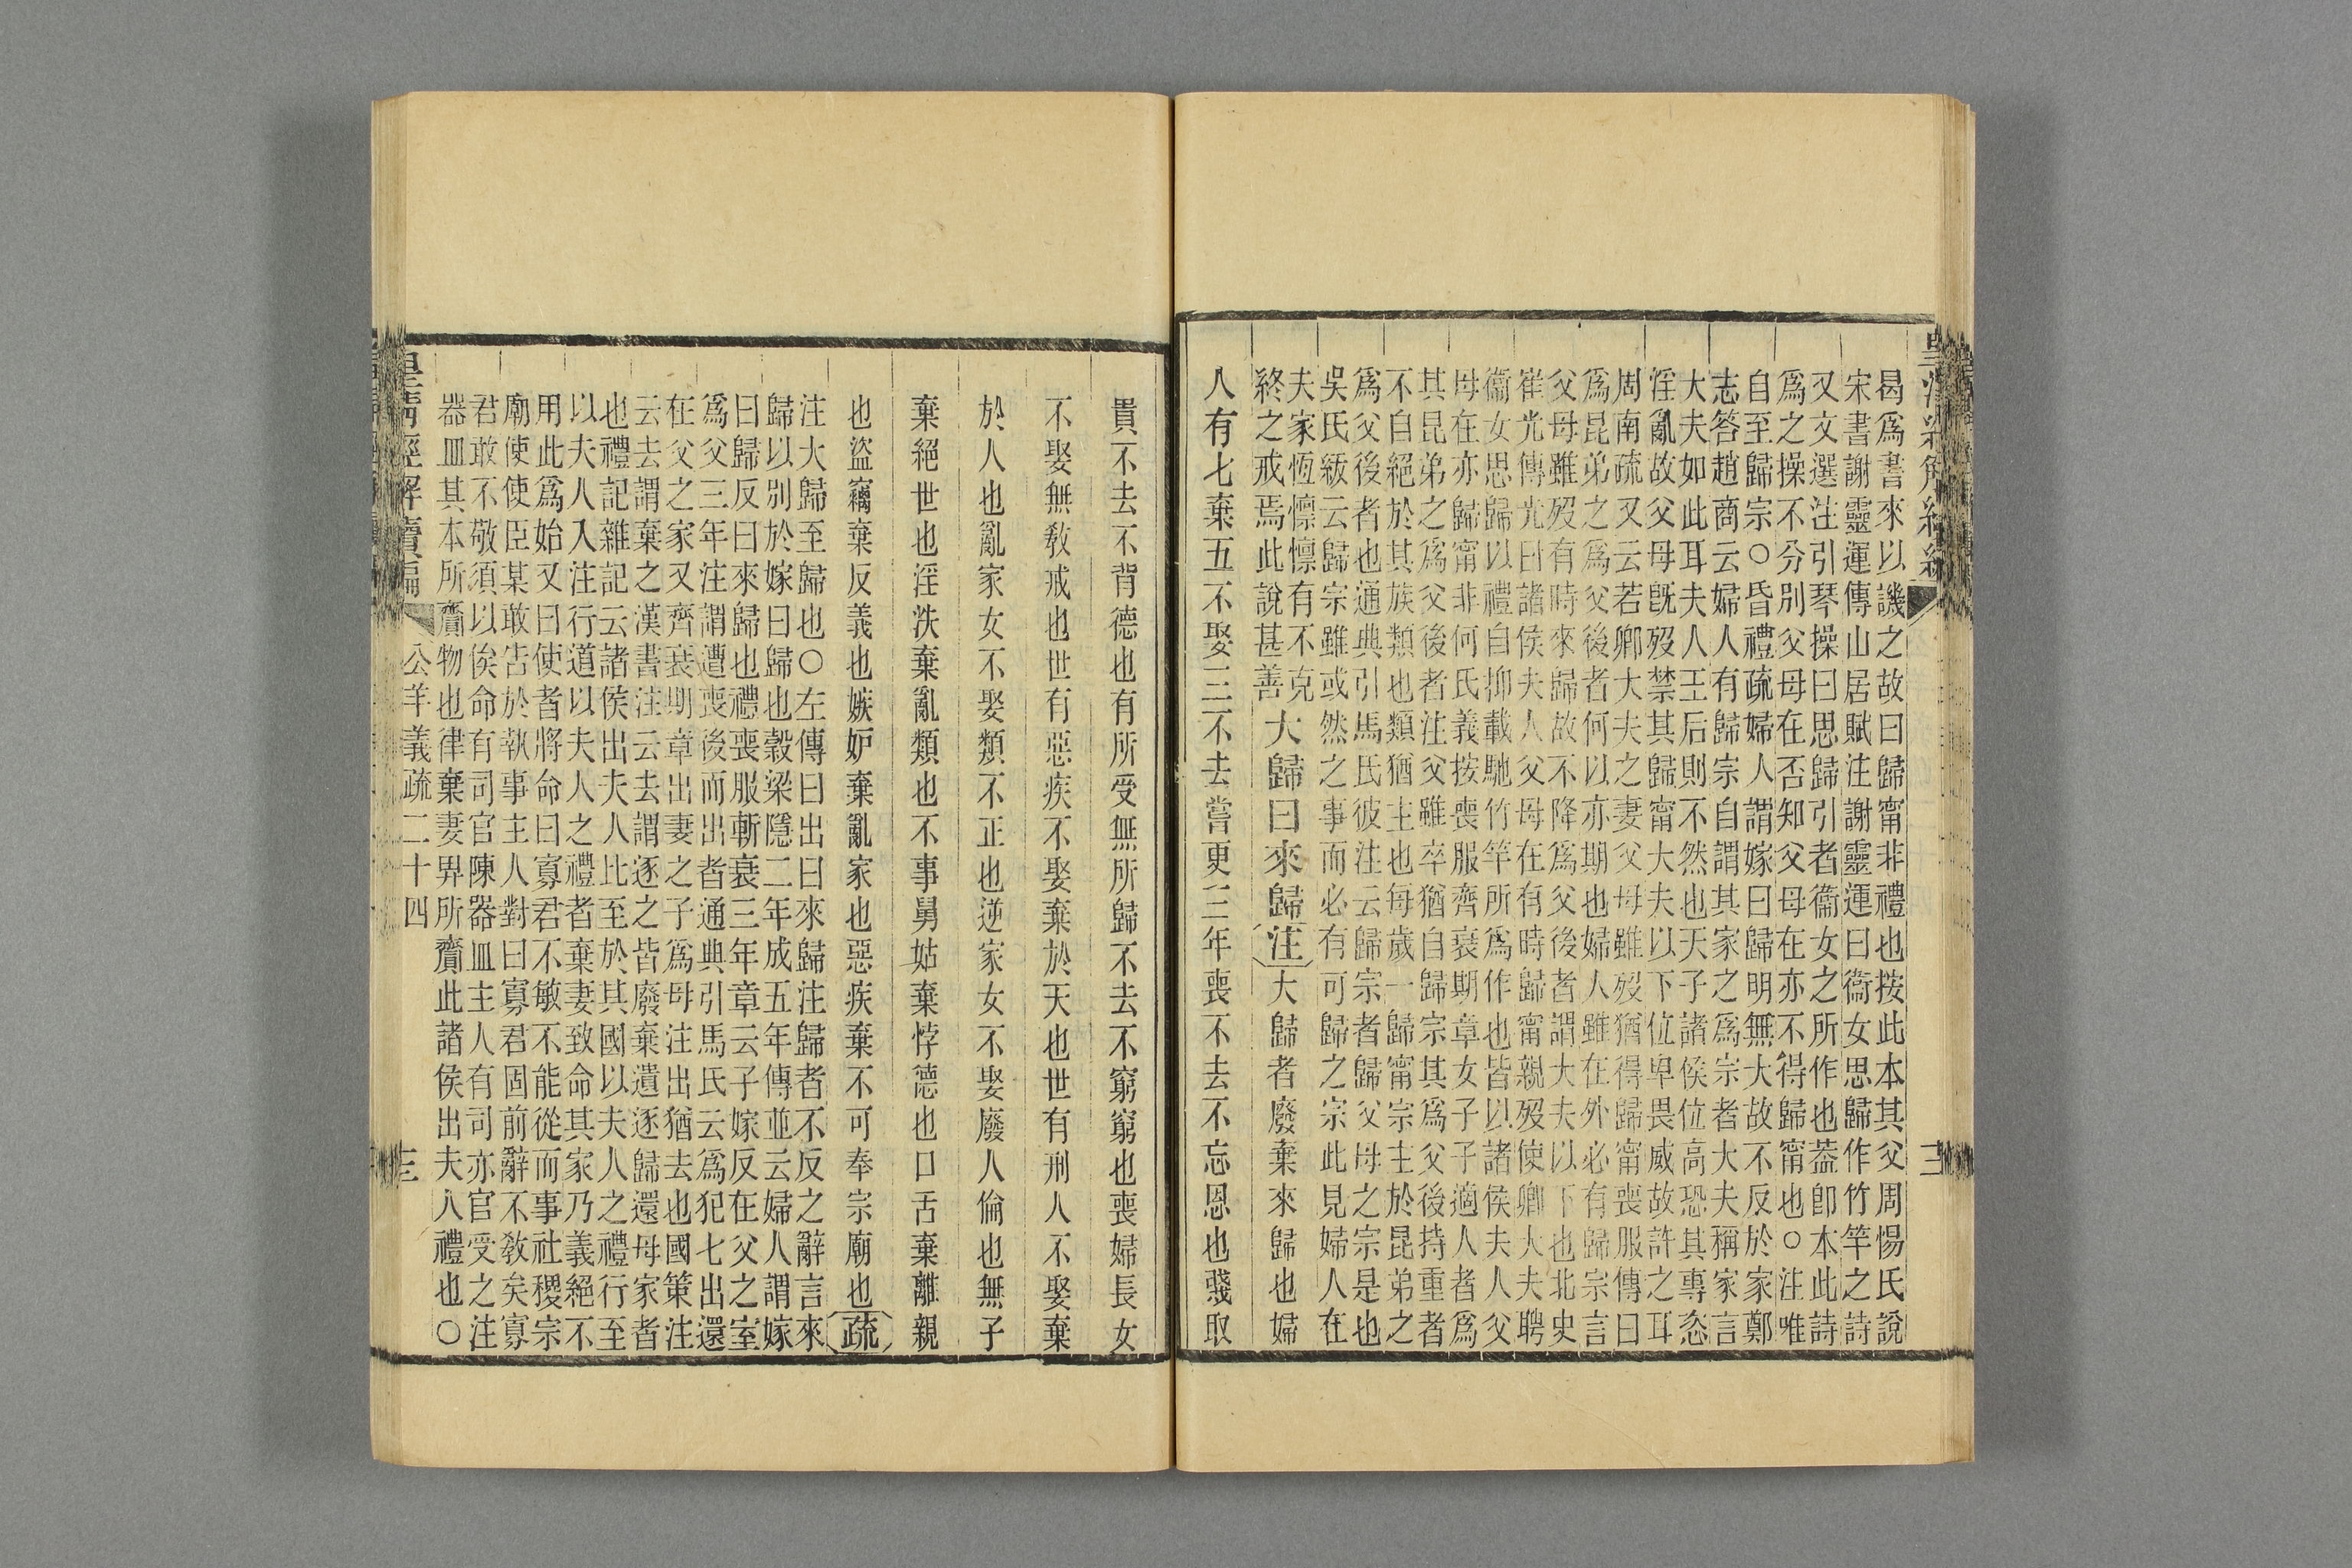 曷爲書來以譏之故曰歸甯非禮也按此本其父周惕氏說
宋書謝靈運傳山居賦注謝靈運曰衞女思歸作竹竿之詩
又文選注引琴操曰思歸引者衞女之所作也蓋卽本此詩
爲之操不分別父母在否知父母在亦不得歸甯也○注唯
自至歸宗○昏禮疏婦人謂嫁曰歸明無大故不反於家鄭
志答趙商云婦人有歸宗自謂其家之爲宗者大夫稱家言
大夫如此耳夫人王后則不然也天子諸侯位高恐其專恣
淫亂故父母旣歿禁其歸甯大夫以下位卑畏威故許之耳
周南疏又云若卿大夫之妻父母雖歿猶得歸甯喪服傳曰
爲昆弟之爲父後者何以亦期也婦人雖在外必有歸宗言
父母雖歿有時來歸故不降爲父後者謂大夫以下也北史
崔光傳光曰諸侯夫人父母在有時歸甯親歿使卿大夫聘
衞女思歸以禮自抑載馳竹竿所爲作也皆以諸侯夫人父
母在亦歸甯非何氏義按喪服齊衰期章女子子適人者爲
其昆弟之爲父後者注父雖卒猶自歸宗其爲父後持重者
不自絕於其族類也類猶主也每歲一歸甯宗主於昆弟之
爲父後者也通典引馬氏彼注云歸宗者歸父母之宗是也
吳氏紱云歸宗雖或然之事而必有可歸之宗此見婦人在
夫家恆懍懍有不克
終之戒焉此說甚善
大歸曰來歸注大歸者廢棄來歸也婦
人有七棄五不娶三不去嘗更三年喪不去不忘恩也賤取
貴不去不背德也有所受無所歸不去不窮窮也喪婦長女
不娶無敎戒也世有惡疾不娶棄於天也世有刑人不娶棄
於人也亂家女不娶類不正也逆家女不娶廢人倫也無子
棄絕世也淫泆棄亂類也不事舅姑棄悖德也口舌棄離親
也盜竊棄反義也嫉妒棄亂家也惡疾棄不可奉宗廟也疏
注大歸至歸也○左傳曰出曰來歸注歸者不反之辭言來
歸以別於嫁曰歸也穀梁隱二年成五年傳並云婦人謂嫁
曰歸反曰來歸也禮喪服斬衰三年章云子嫁反在父之室
爲父三年注謂遭喪後而出者通典引馬氏云爲犯七出還
在父之家又齊衰期章出妻之子爲母注出猶去也國策注
云去謂棄之漢書注云去謂逐之皆廢棄遺逐歸還母家者
也禮記雜記云諸侯出夫人比至於其國以夫人之禮行至
以夫人入注行道以夫人之禮者棄妻致命其家乃義絕不
用此爲始又曰使者將命曰寡君不敏不能從而事社稷宗
廟使使臣某敢吿於執事主人對曰寡君固前辭不敎矣寡
君敢不敬須以俟命有司官陳器皿主人有司亦官受之注
器皿其本所齎物也律棄妻畀所齎此諸侯出夫人禮也○
皇淸經解續編
公羊義疏二十四
三